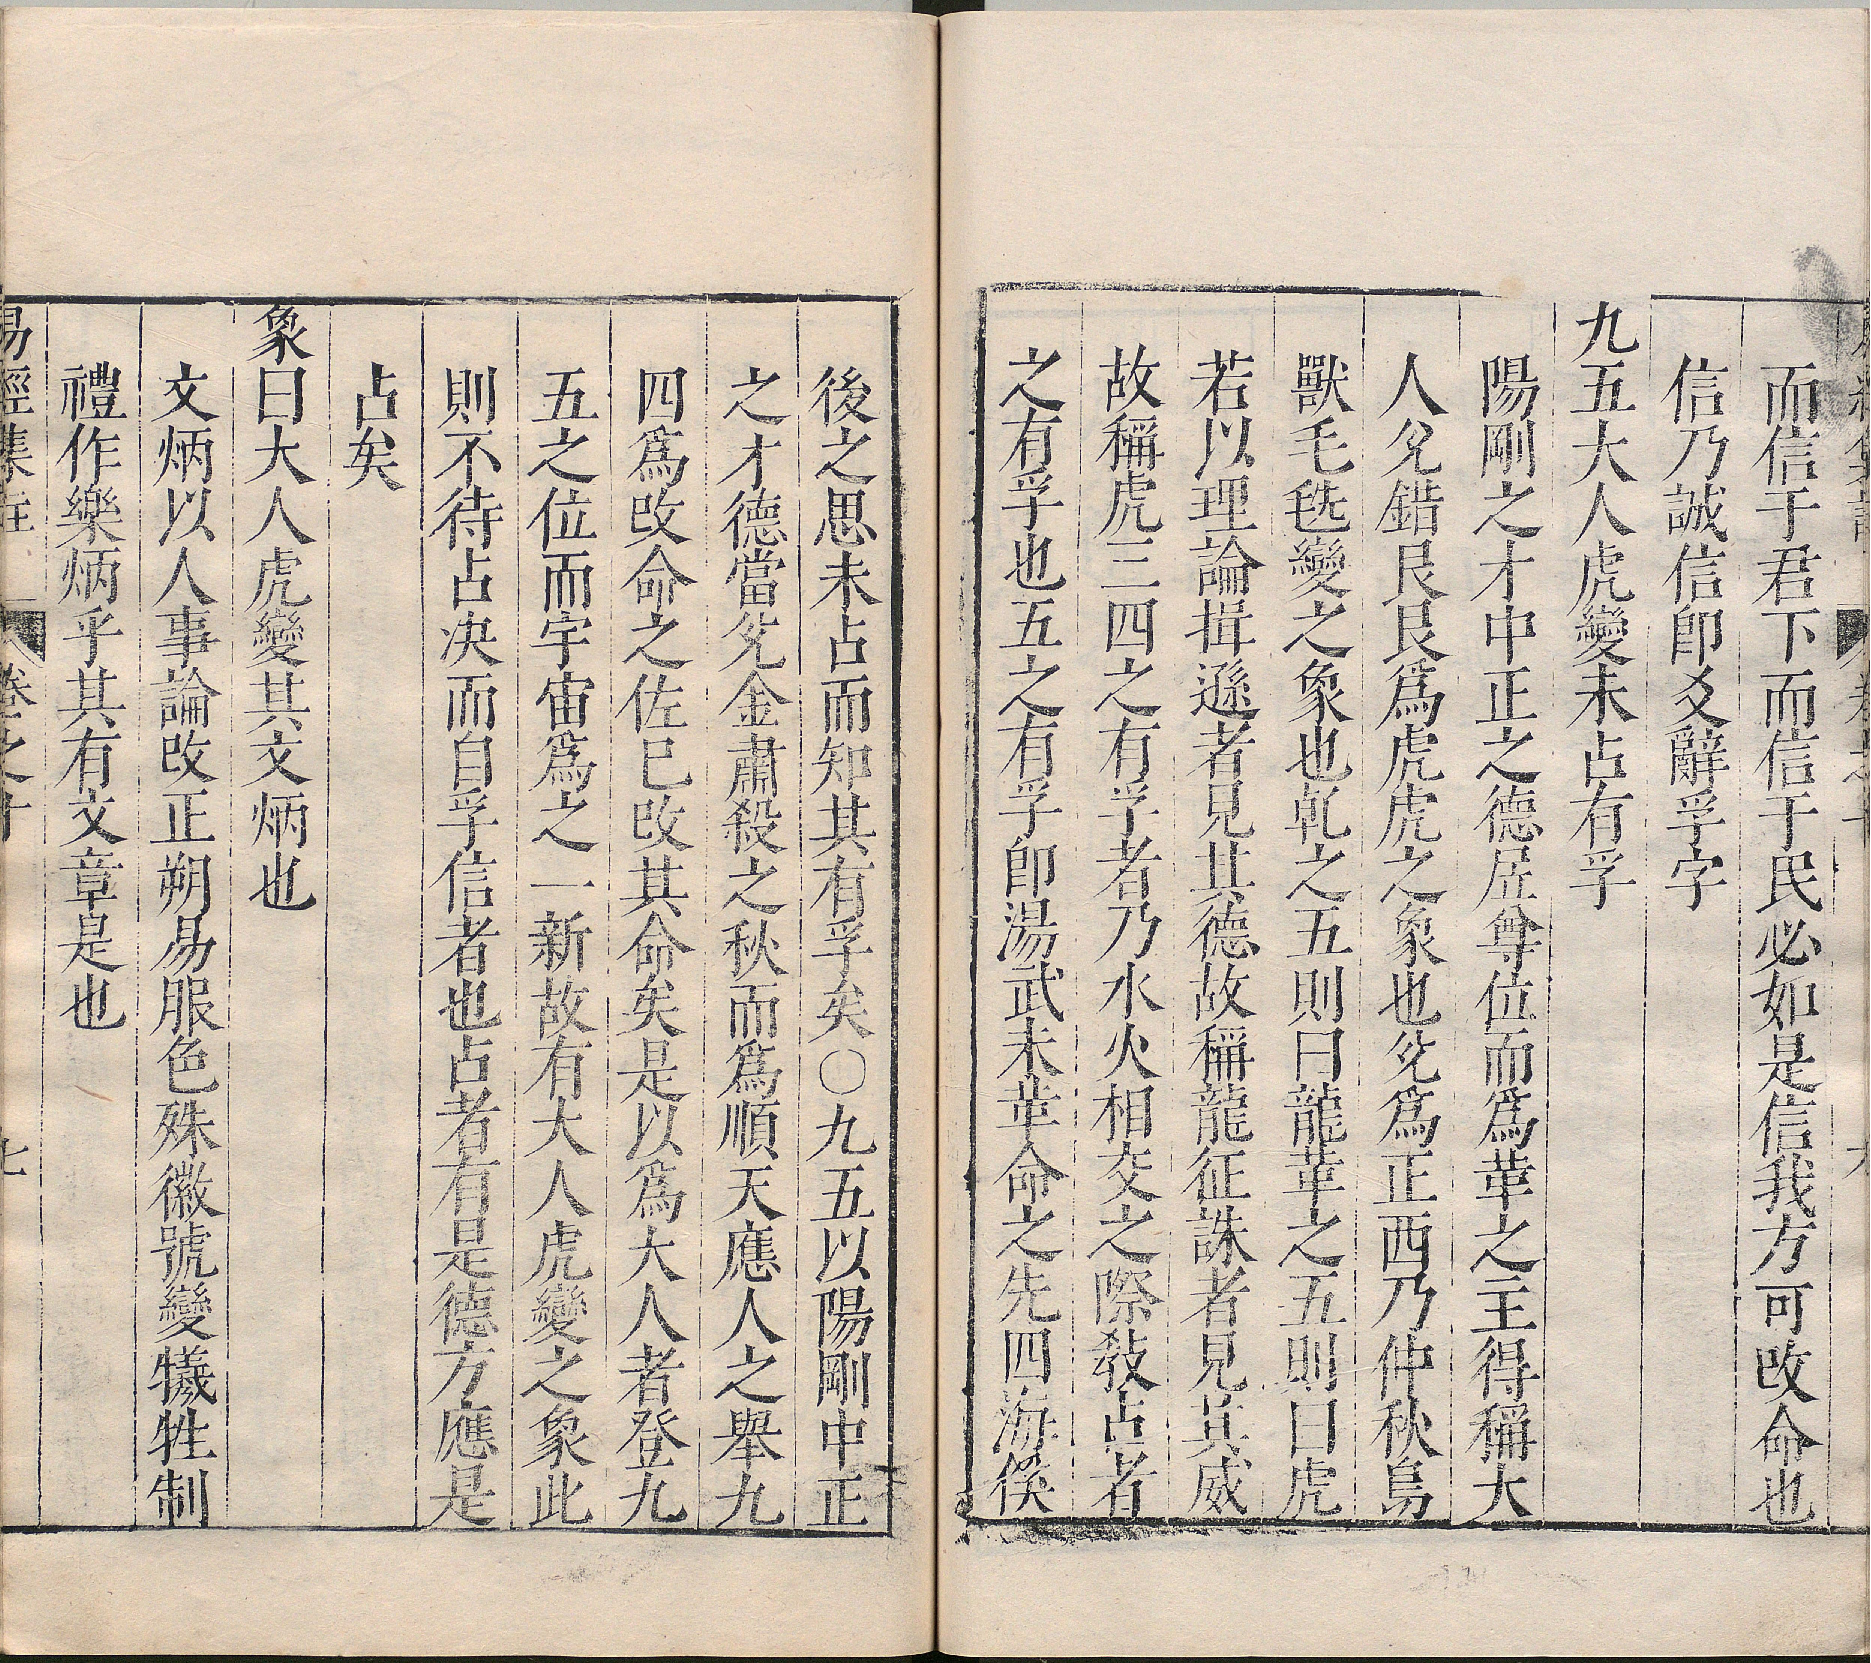 而信于君下而信于民必如是信我方可改命也
信乃誠信即爻辭孚字
九五大人虎變未占有孚
陽剛之才中正之德居尊位而爲革之主得稱大
人兌錯艮艮爲虎虎之象也兌爲正西乃仲秋鳥
獸毛毨變之象也乾之五則曰龍革之五則曰虎
若以理論揖遜者見其德故稱龍征誅者見其威
故稱虎三四之有孚者乃水火相交之際教占者
之有孚也五之有孚即湯武未革命之先四海徯
後之思未占而知其有孚矣○九五以陽剛中正
之才德當兌金肅殺之秋而爲順天應人之舉九
四爲改命之佐巳改其命矣是以爲大人者登九
五之位而宇宙爲之一新故有大人虎變之象此
則不待占決而自孚信者也占者有是德方應是
占矣
象曰大人虎變其文炳也
文炳以人事論改正朔易服色殊徽號變犧牲制
禮作樂炳乎其有文章是也
易經集註 卷之十 七